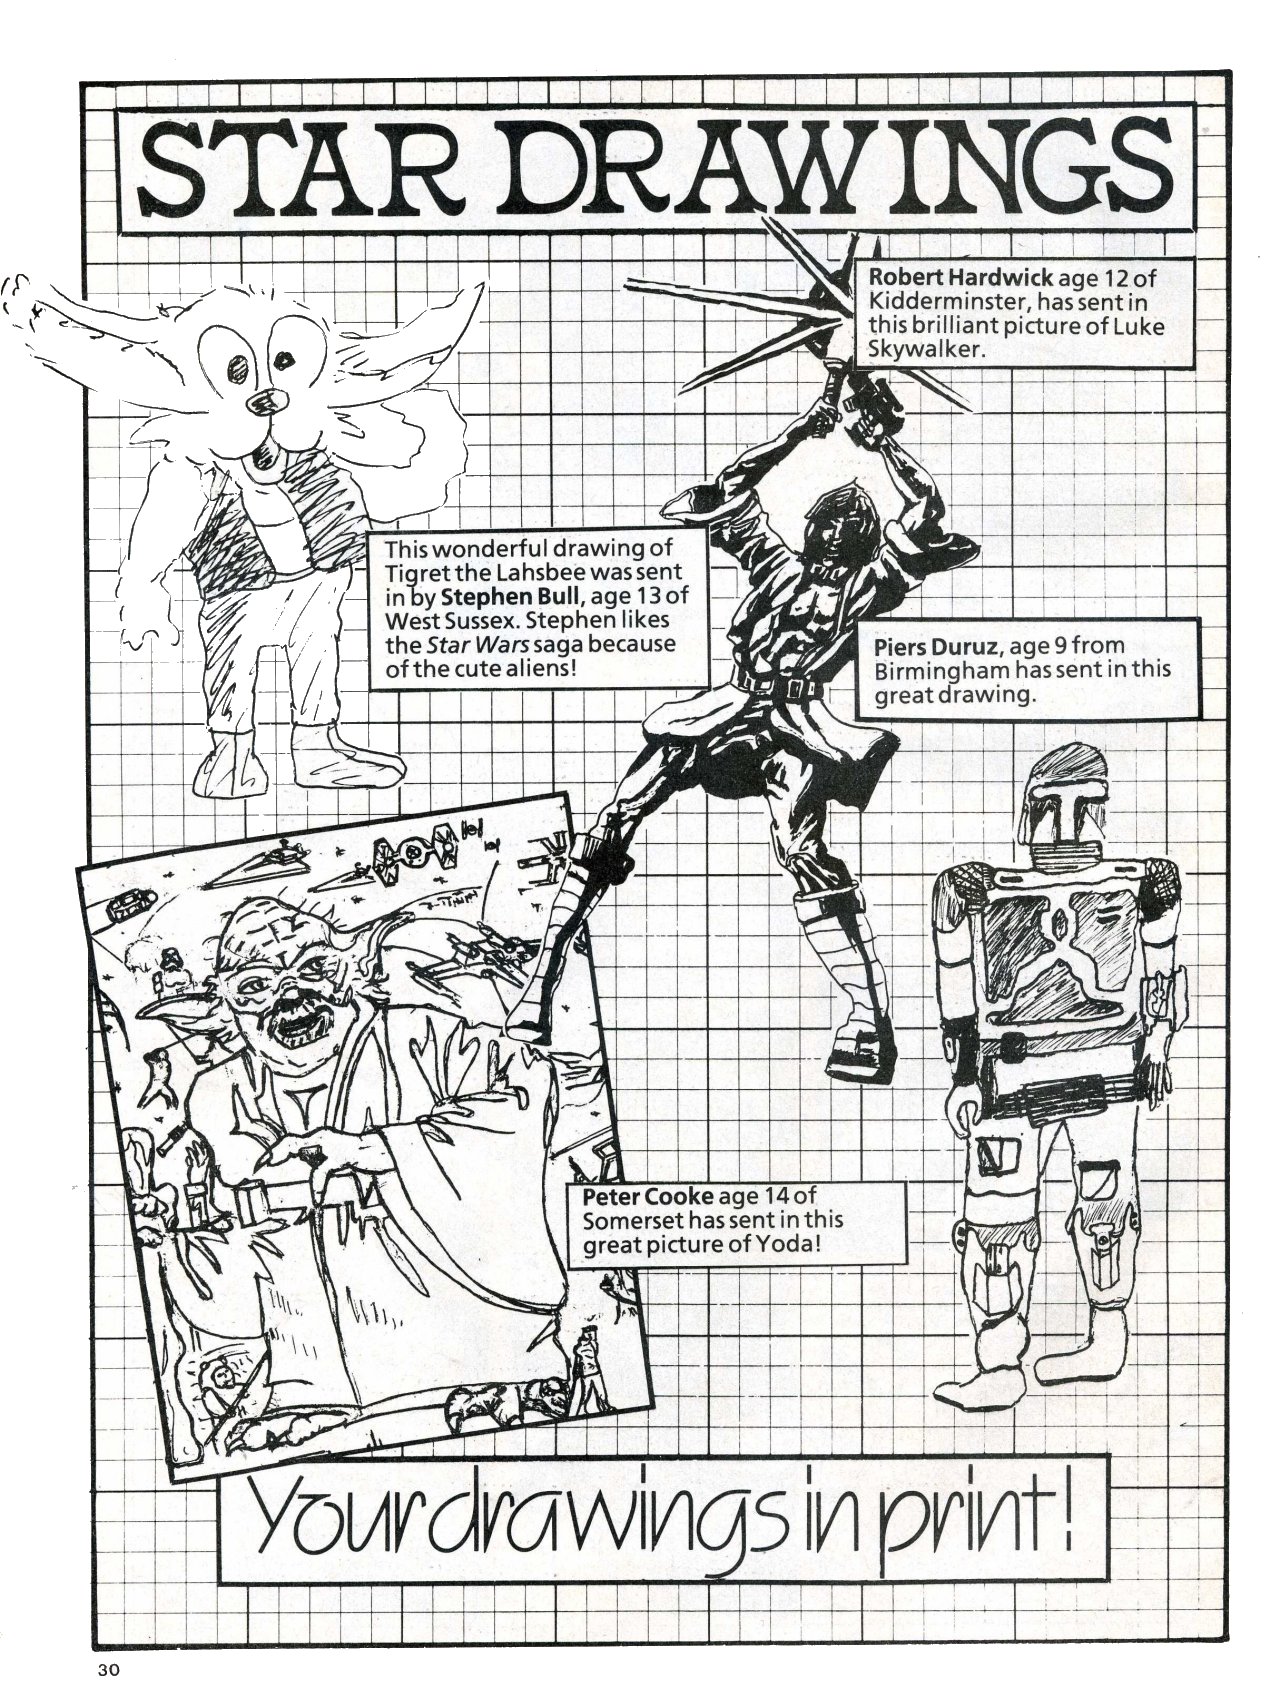 STAR DRAWINGS
Robert Hardwick age 12 of
Kidderminster, has sent in
this brilliant picture of Luke
Skywalker.
This wonderful drawing of
Tigret the Lahsbee was sent
in by Stephen Bull, age 13 of
West Sussex. Stephen likes
the Star Wars saga because
of the cute aliens!
Piers Duruz, age 9 from
Birmingham has sent in this
great drawing.
Peter Cooke age 14 of
Somerset has sent in this
great picture of Yoda!
Your drawings in print!
30